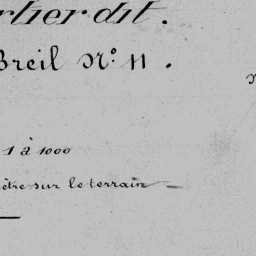 rtier dit.
Breil N°: 11.
1 à 1000
ètre sur le terrain